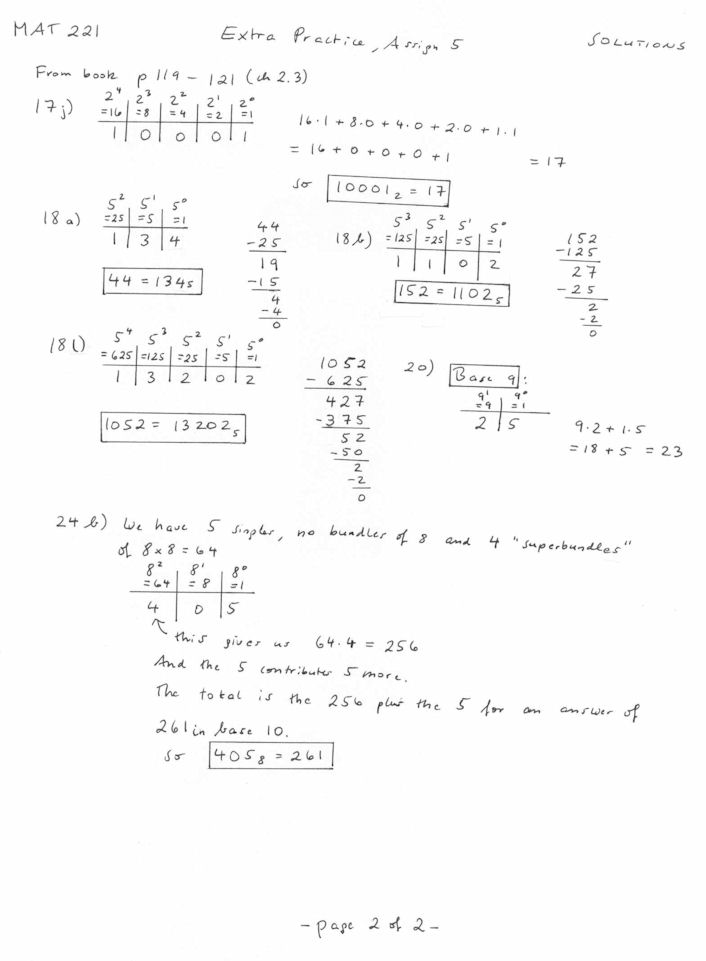 MAT 221 Extra Practice, Assign 5 SOLUTIONS
From book p 119 - 121 (ch 2.3)
17j) 2^4 =16 | 2^3 =8 | 2^2 =4 | 2^1 =2 | 2^0 =1
1 | 0 | 0 | 0 | 1
16·1 + 8·0 + 4·0 + 2·0 + 1·1
= 16 + 0 + 0 + 0 + 1 = 17
so 10001₂ = 17
18 a) 5^2 =25 | 5^1 =5 | 5^0 =1
1 | 3 | 4
44 = 134₅
44
-25
19
-15
4
-4
0
18 b) 5^3 =125 | 5^2 =25 | 5^1 =5 | 5^0 =1
1 | 1 | 0 | 2
152 = 1102₅
152
-125
27
-25
2
-2
0
18 l) 5^4 =625 | 5^3 =125 | 5^2 =25 | 5^1 =5 | 5^0 =1
1 | 3 | 2 | 0 | 2
1052 = 13202₅
1052
- 625
427
-375
52
-50
2
-2
0
20) Base 9:
9^1 =9 | 9^0 =1
2 | 5
9·2 + 1·5
= 18 + 5 = 23
24 b) We have 5 singles, no bundles of 8 and 4 "superbundles"
of 8×8 = 64
8^2 =64 | 8^1 =8 | 8^0 =1
4 | 0 | 5
this gives us 64·4 = 256
And the 5 contributes 5 more.
The total is the 256 plus the 5 for an answer of
261 in base 10.
so 405₈ = 261
- page 2 of 2 -